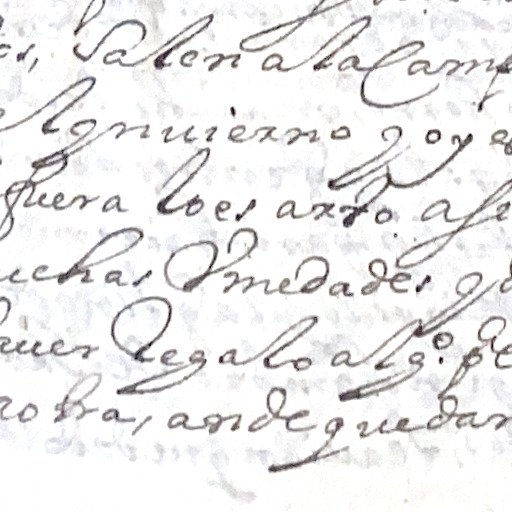 es, Salen a la Camp
el ynuierno y oy es
fuera lo es arto asi
uchas Vmedades y d
auer Regalo algo. pe
robra, an de quedar